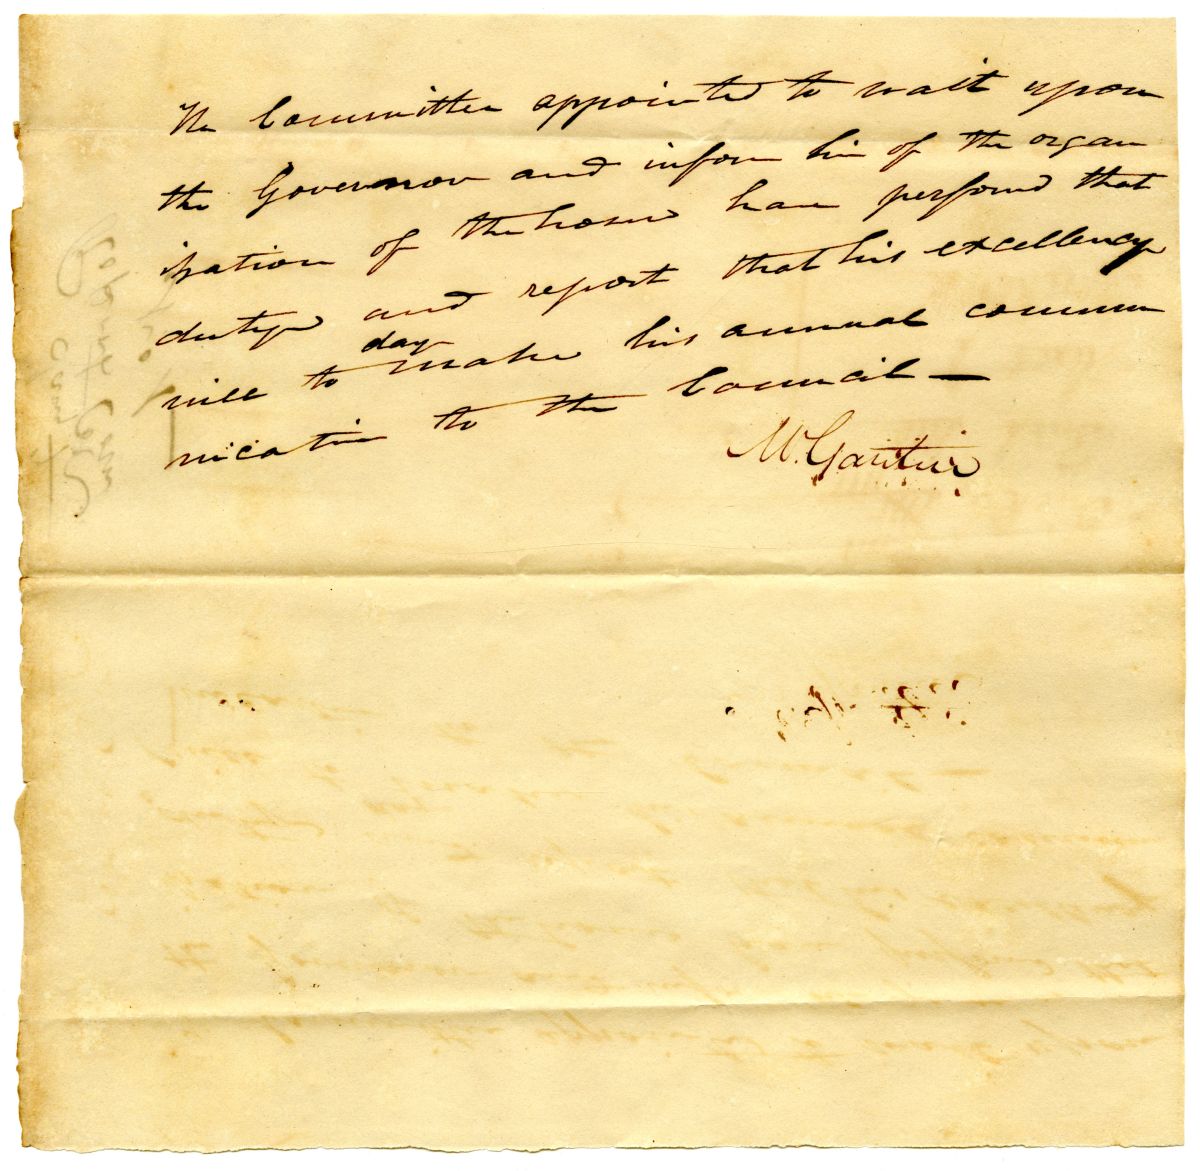 The Committee appointed to wait upon
the Governor and inform him of the organ
ization of the house have performd that
duty and report that his excellency
will to day make his annual commun
nication to the Council —
W. Gautier